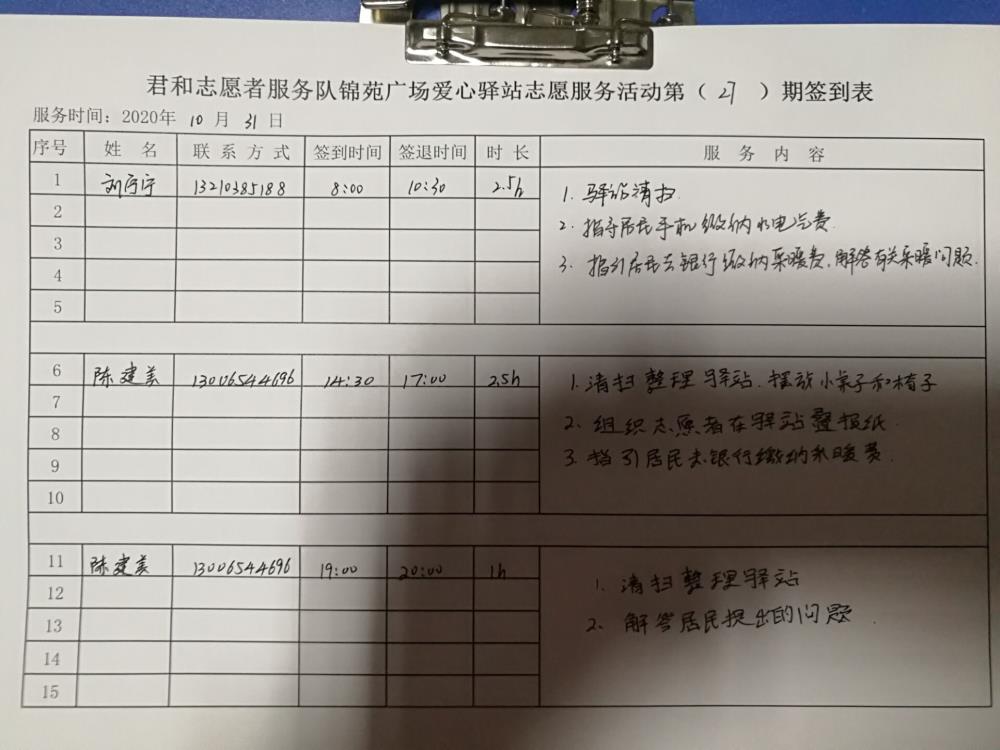 君和志愿者服务队锦苑广场爱心驿站志愿服务活动第（27）期签到表
服务时间：2020年 10 月 31 日
序号 姓 名 联系方式 签到时间 签退时间 时长 服 务 内 容
1 刘 13210385188 8:00 10:30 2.5h
1. 驿站清扫.
2
2. 指导居民手机缴纳水电气费.
3
3. 指引居民去银行缴纳采暖费,解答有关采暖问题.
4
5
6 陈建美 13006544696 14:30 17:00 2.5h
1. 清扫整理驿站.摆放小桌子和椅子
7
2、组织志愿者在驿站叠报纸.
8
3. 指引居民去银行缴纳采暖费.
9
10
11 陈建美 13006544696 19:00 20:00 1h
1. 清扫整理驿站
12
2、解答居民提出的问题.
13
14
15